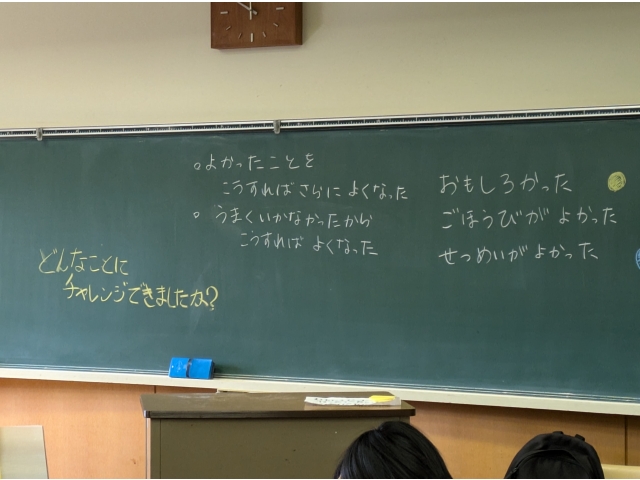 。よかったことを
こうすればさらによくなった
。うまくいかなかったから
こうすればよくなった
おもしろかった
ごほうびがよかった
せつめいがよかった
どんなことに
チャレンジできましたか?